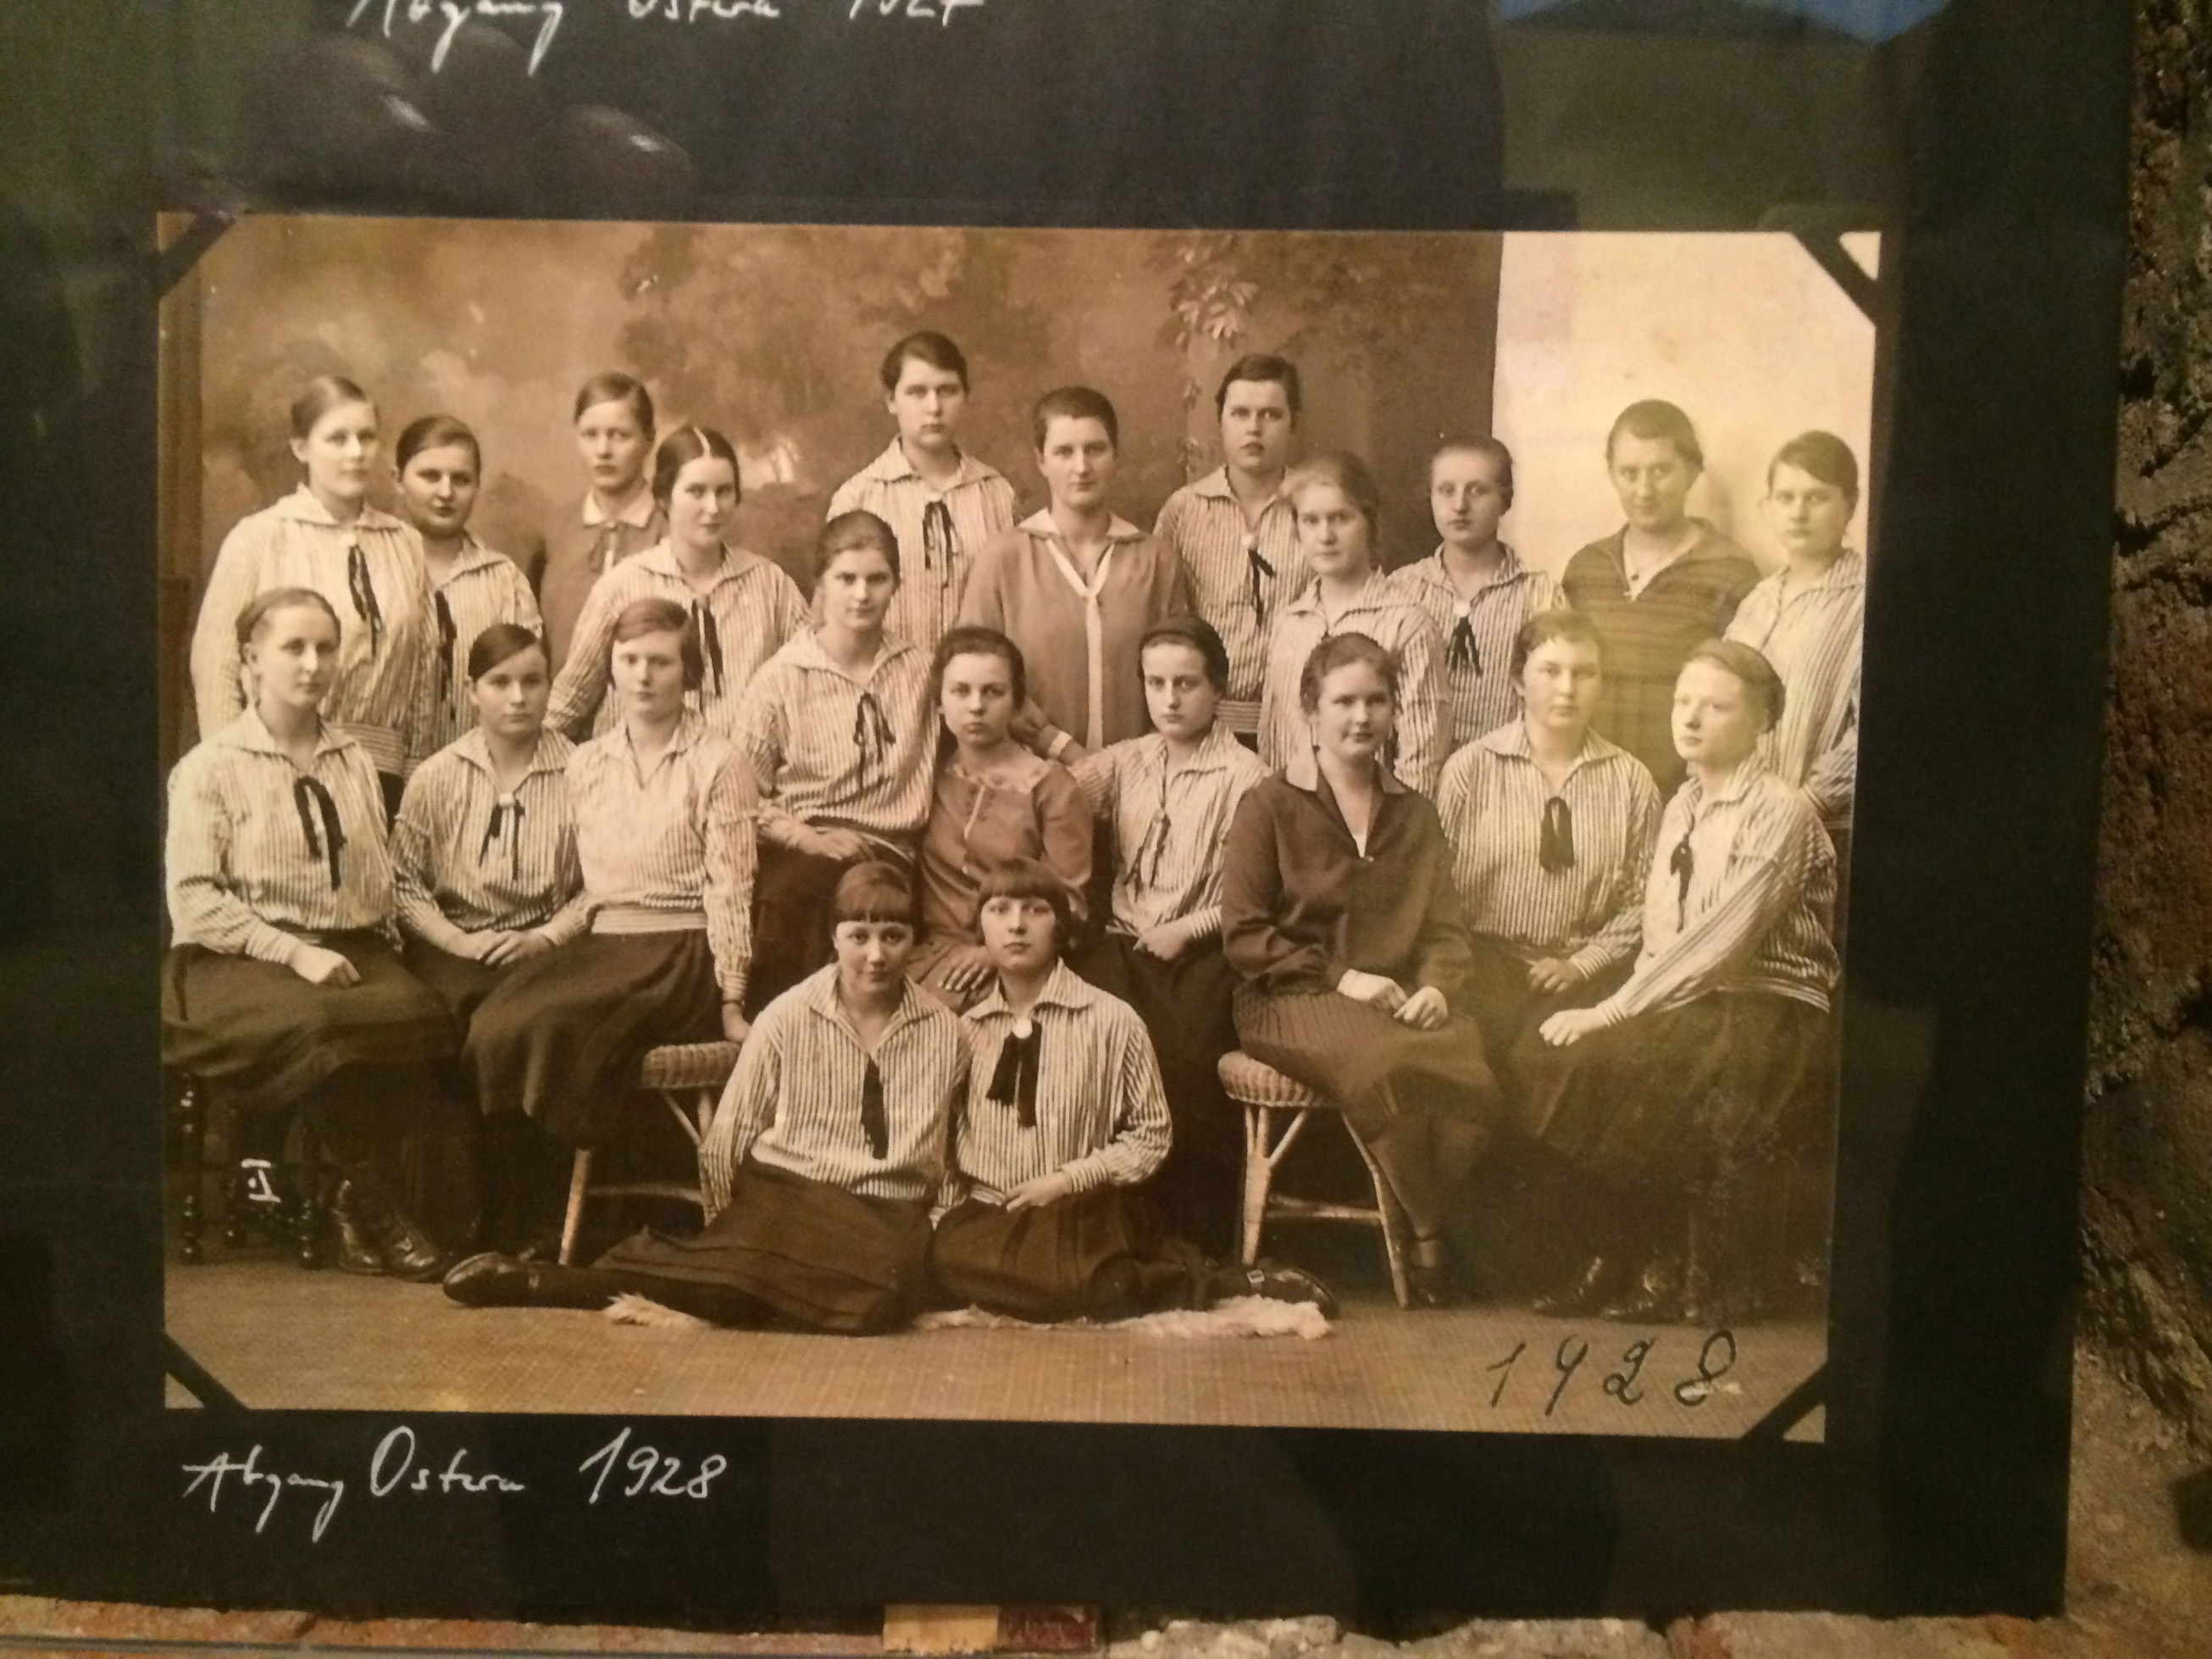 Abgang Ostern 1927
I.
1928
Abgang Ostern 1928